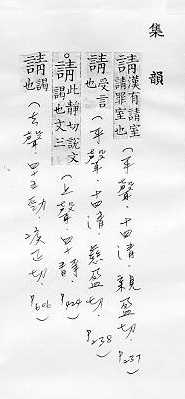 集韻
請 漢有請室請罪室也 (平聲.十四清.親盈切.P.237)
請 受言也 (平聲.十四清.慈盈切.P.238)
請 此靜切說文謁也文三 (上聲.四十靜.P.424)
請 謁也 (去聲.四十五勁.疾正切.P.606)